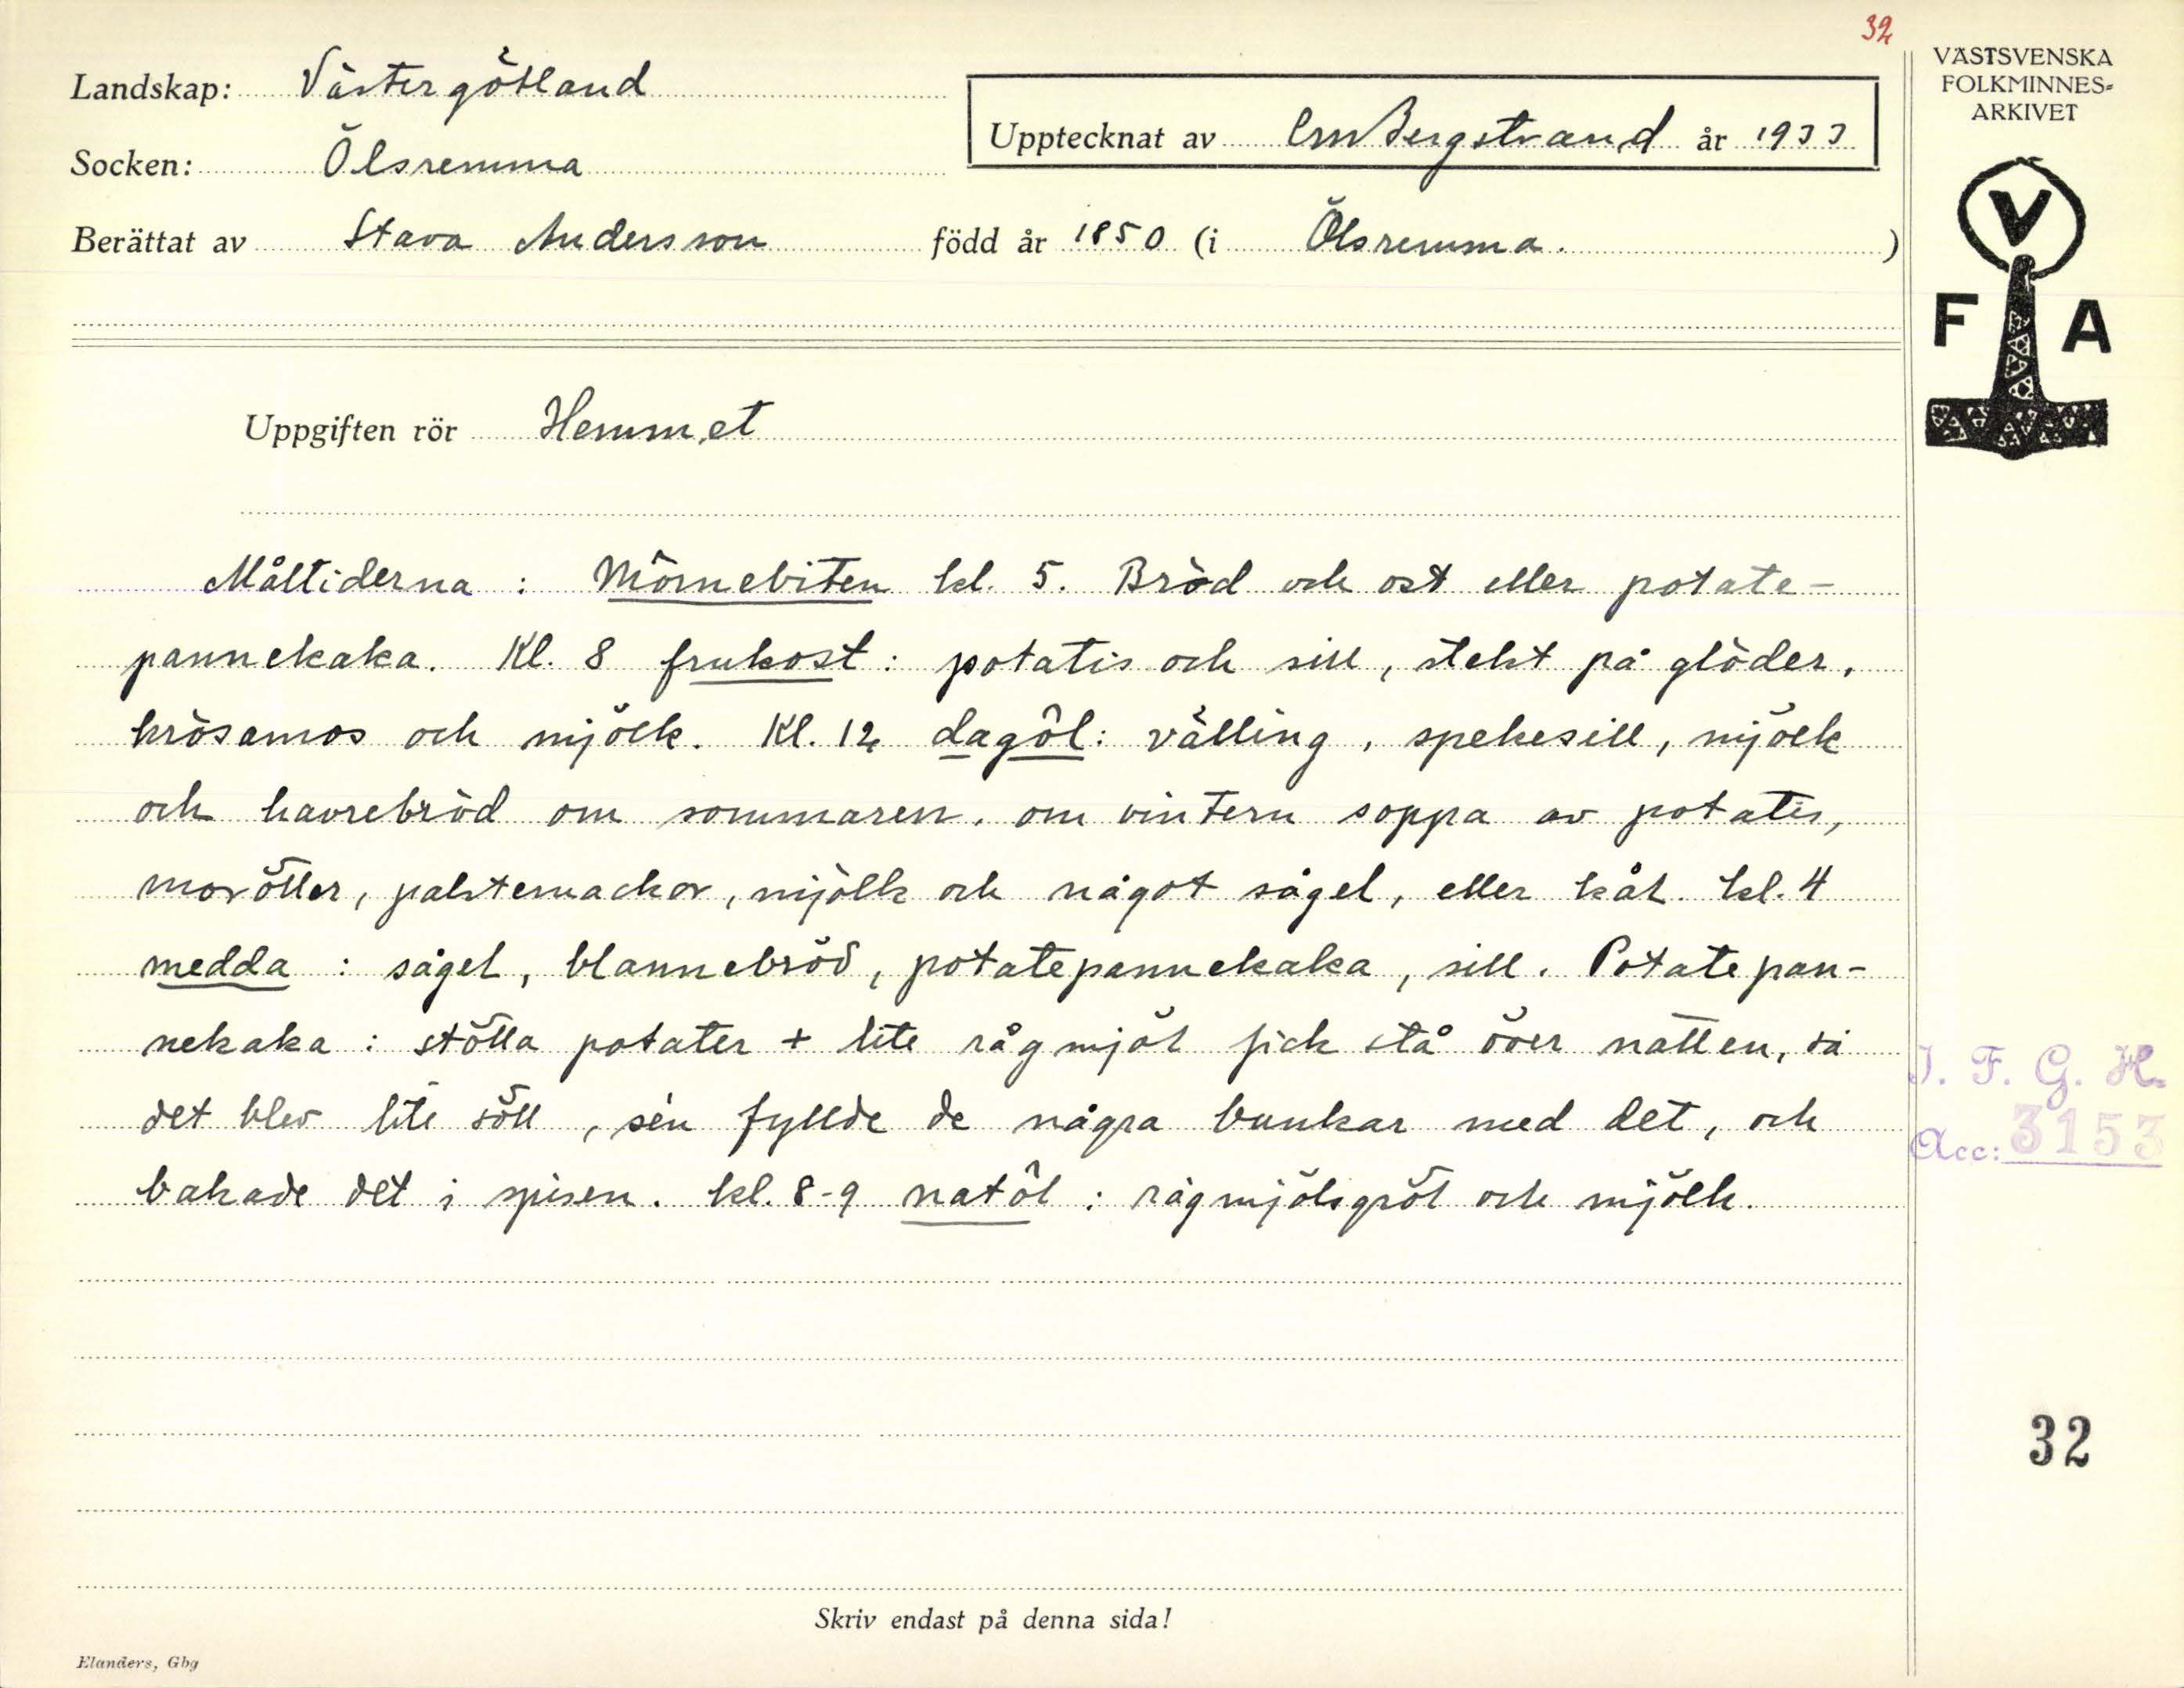 32
VÄSTSVENSKA
FOLKMINNES-
ARKIVET
Landskap: Västergötland
Upptecknat av C.M. Bergstrand år 1933
Socken: Ölsremma
Berättat av Stava Andersson född år 1850 (i Ölsremma.)
V
F A
Uppgiften rör Hemmet
Måltiderna : Mörnebiten kl. 5. Bröd och ost eller potate-
pannekaka. Kl. 8 frukost : potatis och sill, stekt på glöder,
krösamos och mjölk. Kl. 12 dagôl : välling, spekesill, mjölk
och havrebröd om sommaren. om vintern soppa av potatis,
morötter, palsternackor, mjölk och något sågel, eller kål. kl. 4
medda : sågel, blannebröd, potatepannekaka, sill. Potatepan-
nekaka : stötta potater + lite rågmjöl fick stå över natten, så
det blev lite sött, sén fyllde de några bunkar med det, och
bakade det i spisen. kl. 8-9 natôl : rågmjölsgröt och mjölk.
I. F. G. H.
Acc: 3153
32
Skriv endast på denna sida!
Elanders, Gbg